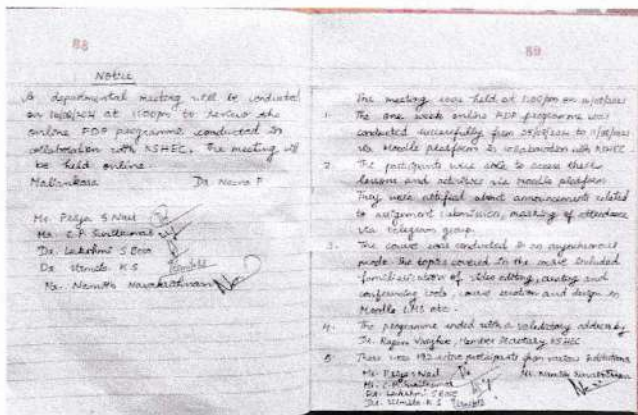 88
NOTICE
A departmental meeting will be conducted
on at to review the
online FDP programme conducted in
collaboration with KSHEC. The meeting will
be held online.
Maliankara Dr.
Ms. Priya S Nair
Mr. C.P.
Dr. Lakshmi S Bose
Dr. K.S
Ms.
89
The meeting was held at on
1. The one week online FDP programme was
conducted successfully from to
via Moodle platform in collaboration with KSHEC
2. The participants were able to access their
lessons and activities via Moodle platform
They were about announcements related
to assignment submission, marking of attendance
via telegram group.
3. The course was conducted in an asynchronous
mode. The topics covered in the course included
familiarisation of video editing, and
conferencing tools, course creation and design in
Moodle LMS etc.
4. The programme ended with a valedictory address by
Dr. Rajan Varghese, Member Secretary, KSHEC
5. There were 192 active participants from various institutions
Ms. Priya S Nair
Mr. C.P.
Dr. Lakshmi S Bose
Dr. K.S